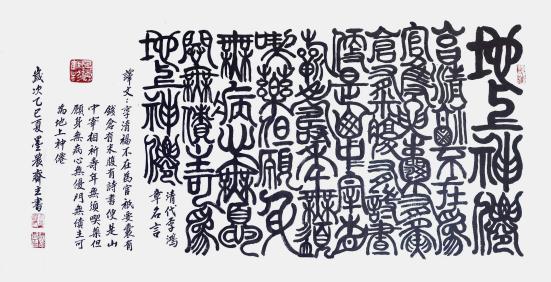 地上神僊
享清福不在爲
官祇要囊有錢
倉有米腹有詩書
便是山中宰相
祈壽年無須
喫藥但願身
無病心無憂
門無債主可爲
地上神僊
清代李鴻
章名言
譯文：享清福不在為官祇要囊有
錢倉有米腹有詩書便是山
中宰相祈壽年無須喫藥但
願身無病心無憂門無債主可
為地上神僊
歲次乙巳夏墨農齋主書